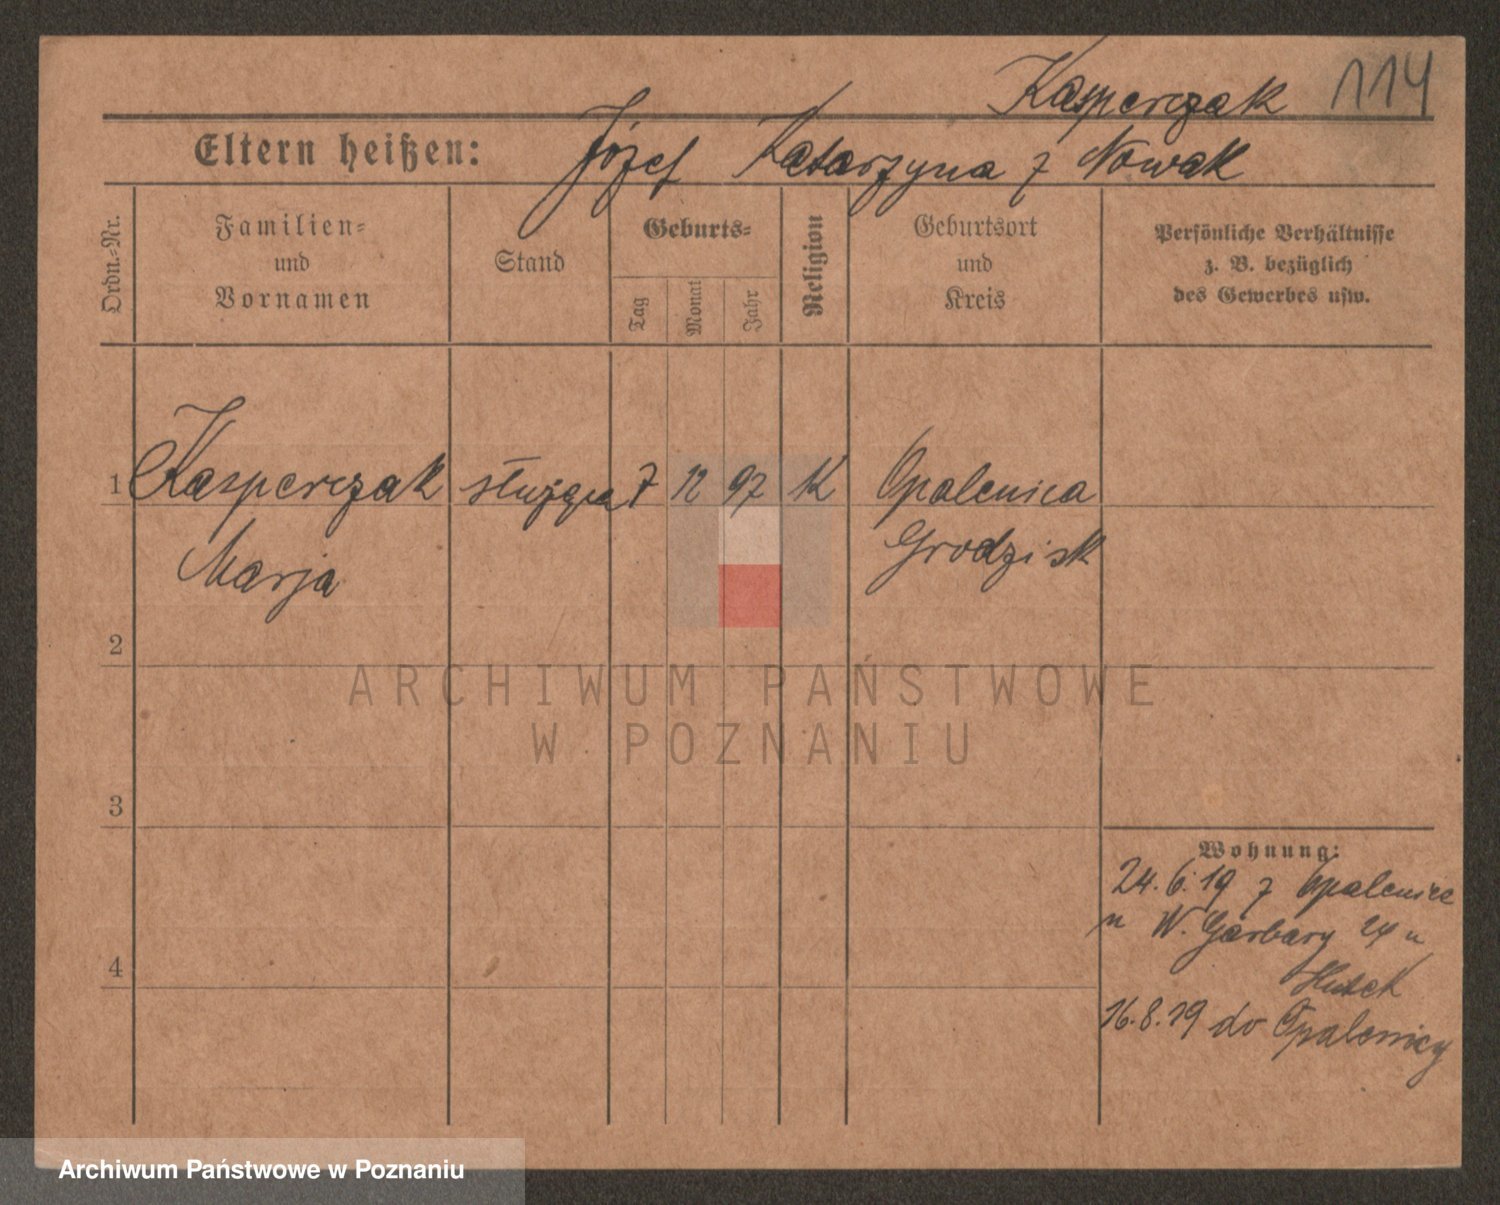 Kasperczak 114
Eltern heißen: Józef Katarzyna z Nowak
Ordn.-Nr.
Familien-
und
Vornamen
Stand
Geburts-
Tag
Monat
Jahr
Religion
Geburtsort
und
Kreis
Persönliche Verhältnisse
z. B. bezüglich
des Gewerbes usw.
1 Kasperczak służąca 7 12 97 K Opalenica
Marja Grodzisk
2
3
4
Wohnung:
24.6.19 z Opalenice
W. Garbary 24 u
16.8.19 do Opalenicy
ARCHIWUM PAŃSTWOWE
W POZNANIU
Archiwum Państwowe w Poznaniu